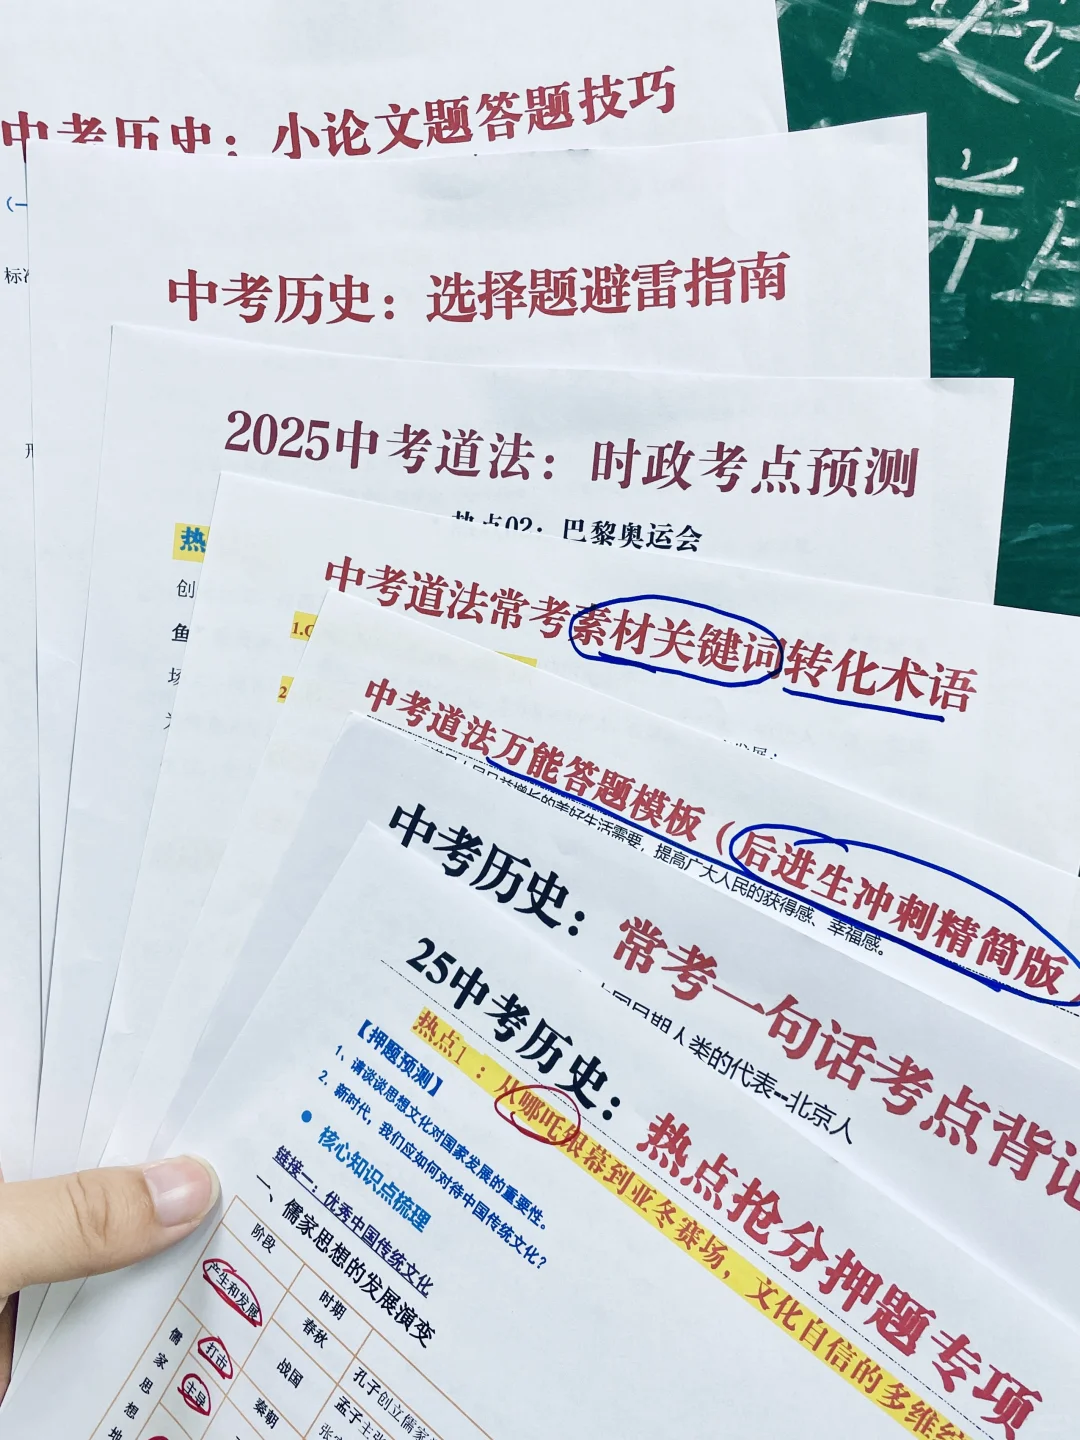 中考历史：小论文题答题技巧
（一
中考历史：选择题避雷指南
2025中考道法：时政考点预测
热点02：巴黎奥运会
热
创
鱼
中考道法常考素材关键词转化术语
中考道法万能答题模板（后进生冲刺精简版）
美好生活需要，提高广大人民的获得感、幸福感。
中考历史：常考一句话考点背记
人类的代表--北京人
25中考历史：热点抢分押题专项
热点1：从哪吒银幕到亚冬赛场，文化自信的多维
【押题预测】
1、请谈谈思想文化对国家发展的重要性。
2、新时代，我们应如何对待中国传统文化？
● 核心知识点梳理
链接一：优秀中国传统文化
一、儒家思想的发展演变
阶段 时期
产生和发展 春秋 孔子创立儒家
战国 孟子主张
打击 秦朝
主导
儒家思想地